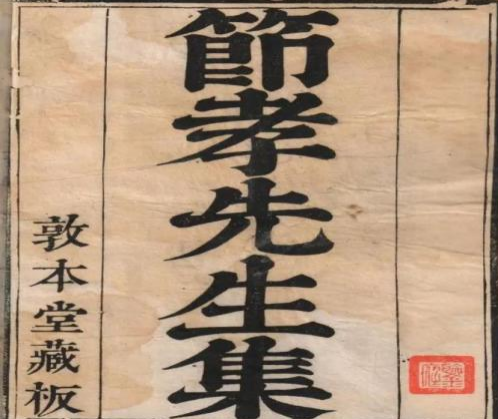 節孝先生集
敦本堂藏板